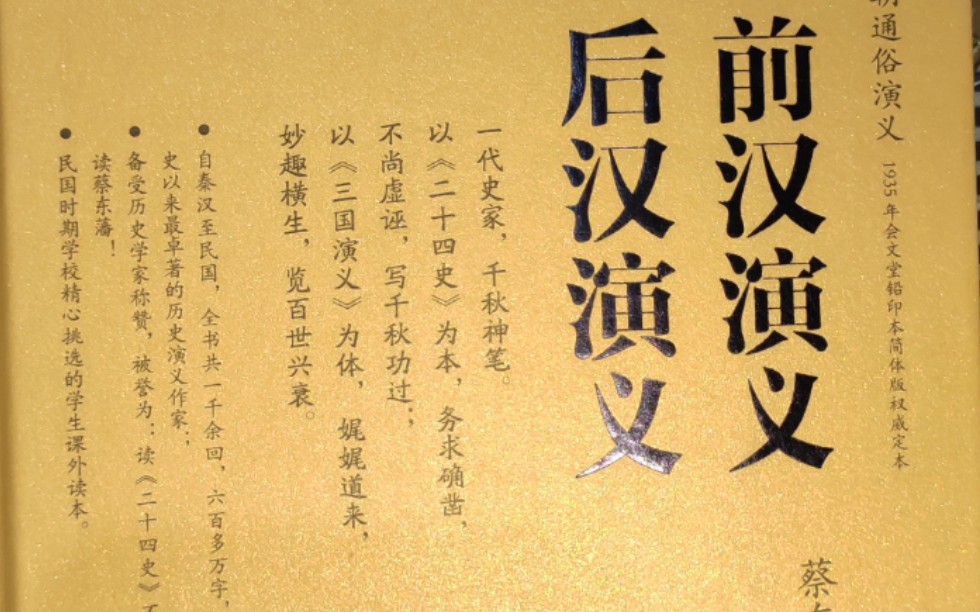 朝通俗演义 1935年会文堂铅印本简体版权威定本
前汉演义
后汉演义
蔡
一代史家，千秋神笔。
以《二十四史》为本，务求确凿，
不尚虚诬，写千秋功过；
以《三国演义》为体，娓娓道来，
妙趣横生，览百世兴衰。
●自秦汉至民国，全书共一千余回，六百多万字，
史以来最卓著的历史演义作家；
●备受历史学家称赞，被誉为：读《二十四史》
读蔡东藩！
●民国时期学校精心挑选的学生课外读本。